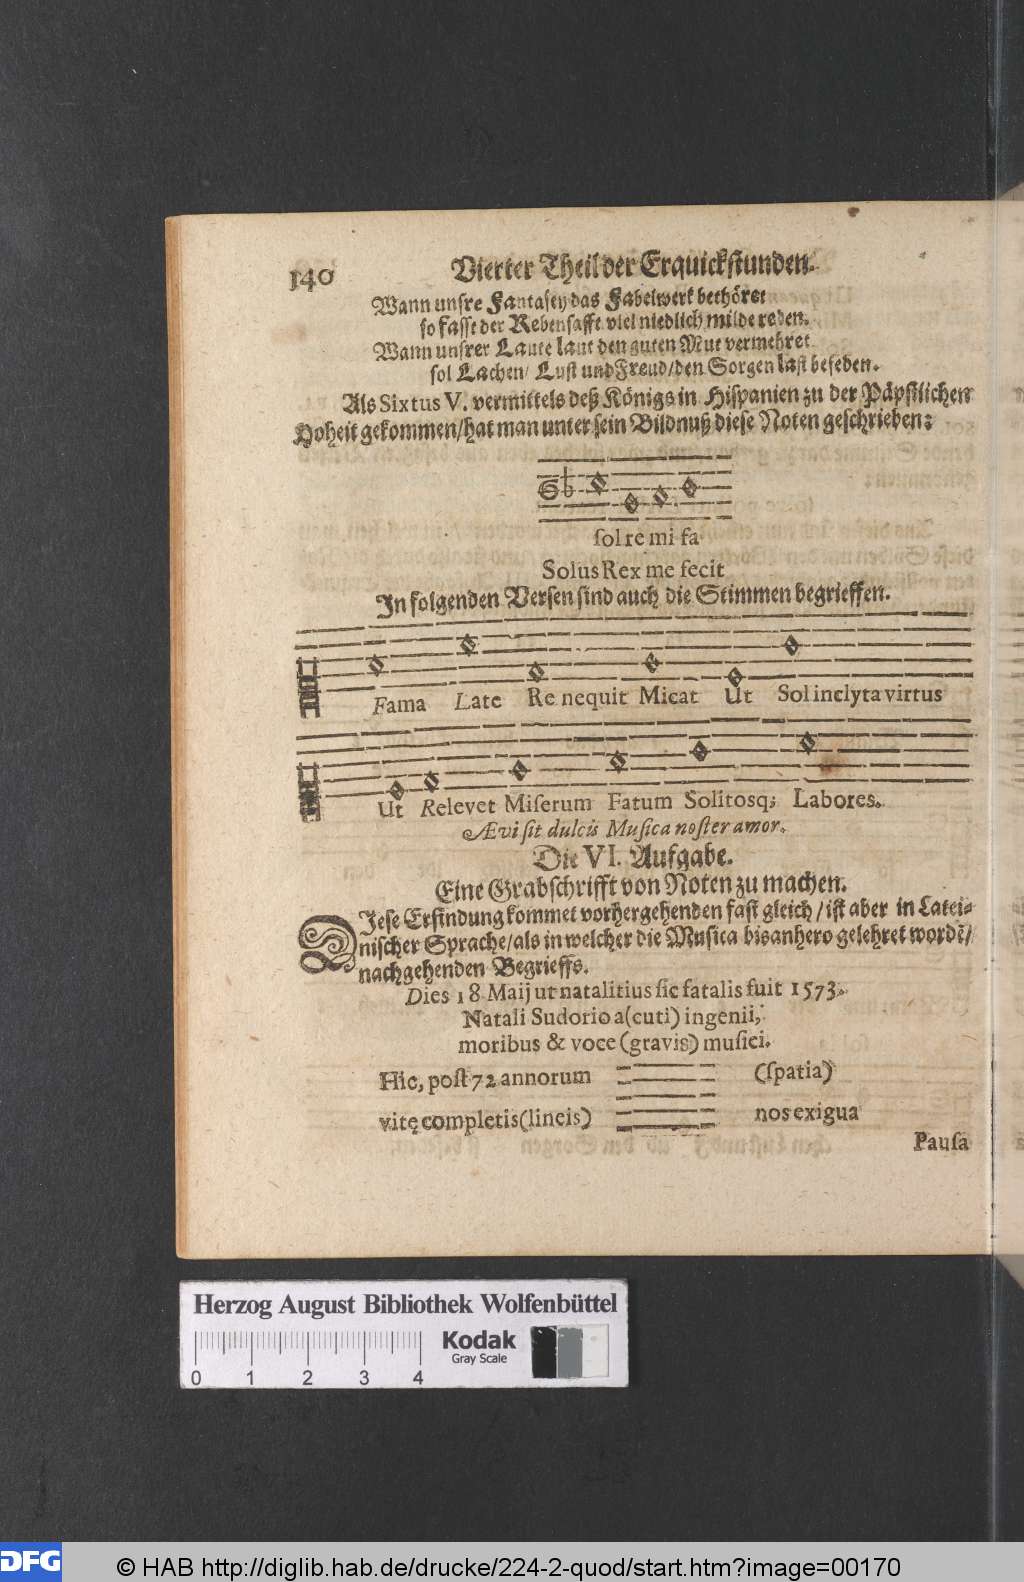 140 Vierter Theil der Erquickstunden.
Wann unsre Fantasey das Fabelwerk bethöret
so fasst der Rebensafft viel niedlich milde reden.
Wann unsrer Laute laut den guten Mut vermehret
sol Lachen/ Lust und Freud/ den Sorgen last befeden.
Als Sixtus V. vermittels deß Königs in Hispanien zu der Päpstlichen
Hoheit gekommen/ hat man unter sein Bildnuß diese Noten geschrieben:
sol re mi fa
Solus Rex me fecit
In folgenden Versen sind auch die Stimmen begrieffen.
Fama Late Re nequit Micat Ut Sol inclyta virtus
Ut Relevet Miserum Fatum Solitosq; Labores.
Ævi sit dulcis Musica noster amor.
Die VI. Aufgabe.
Eine Grabschrifft von Noten zu machen.
DIese Erfindung kommet vorhergehenden fast gleich/ ist aber in Latei-
nischer Sprache/ als in welcher die Musica bisanhero gelehret wordē/
nachgehenden Begrieffs.
Dies 18 Maij ut natalitius sic fatalis fuit 1573.
Natali Sudorio a(cuti) ingenii,
moribus & voce (gravis) musici.
Hic, post 72 annorum (spatia)
vitę completis (lineis) nos exigua
Pausa
Herzog August Bibliothek Wolfenbüttel
Kodak
Gray Scale
0 1 2 3 4
DFG © HAB http://diglib.hab.de/drucke/224-2-quod/start.htm?image=00170